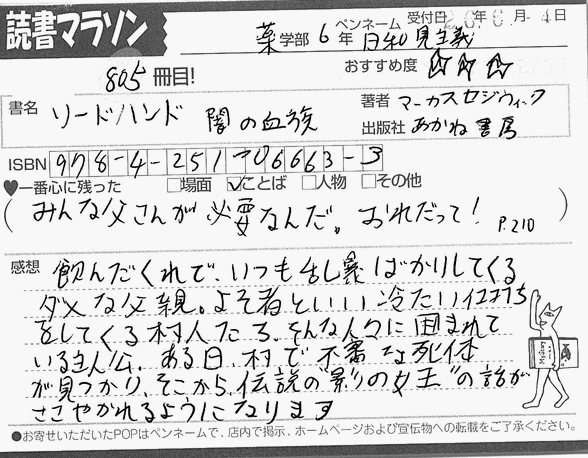 読書マラソン
受付日 年 月 日
薬学部 6年 ペンネーム 日和見主義
805冊目!
おすすめ度 ☆☆☆
書名 ソードハンド 闇の血族
著者 マーカスセジウィック
出版社 あかね書房
ISBN 978-4-251-06663-3
♥一番心に残った □場面 ☑ことば □人物 □その他
(みんな父さんが必要なんだ。おれだって! P.210)
感想 飲んだくれで、いつも乱暴ばかりしてくる
ダメな父親。よそ者といい冷たい仕打ち
をしてくる村人たち。そんな人々に囲まれて
いる主人公。ある日、村で不審な死体
が見つかり、そこから、伝説の"影の女王"の話が
ささやかれるようになります
●お寄せいただいたPOPはペンネームで、店内で掲示、ホームページおよび宣伝物への転載をご了承ください。